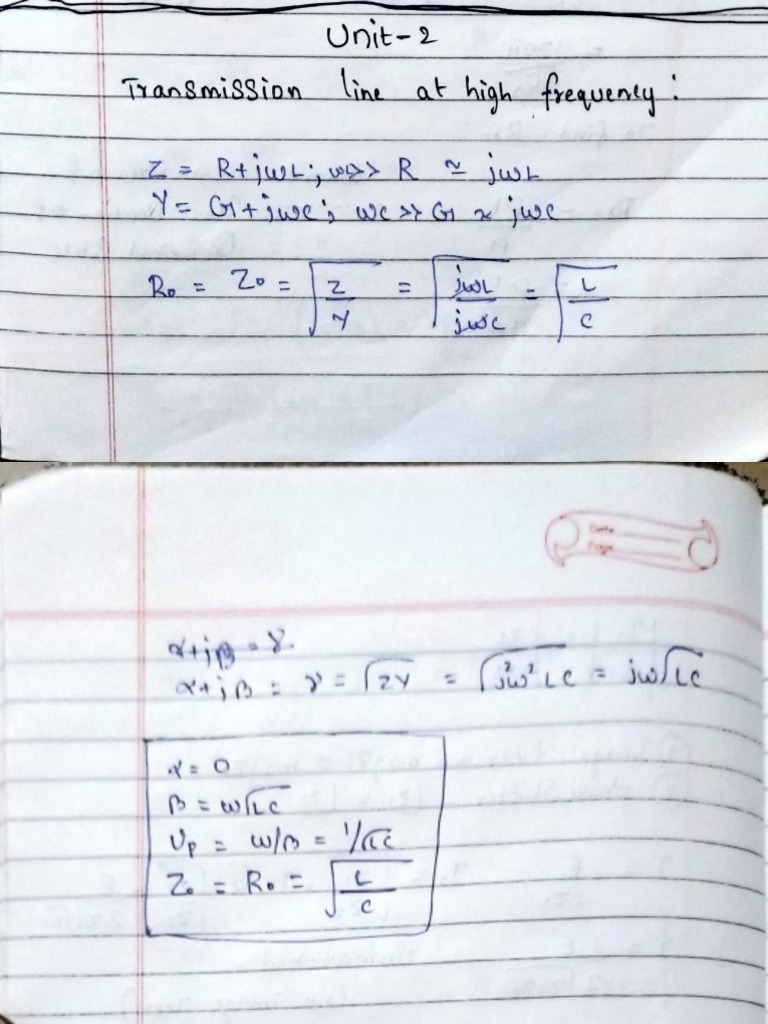 Unit-2
Transmission line at high frequency:
Z = R+jωL; ωL>> R ≃ jωL
Y = G+jωC; ωC >> G ≈ jωC
R₀ = Z₀ = √(Z/Y) = √(jωL/jωC) = √(L/C)
α+jβ = γ.
α+jβ = γ = √ZY = √j²ω²LC = jω√LC
α = 0
β = ω√LC
υp = ω/β = 1/√LC
Z₀ = R₀ = √(L/C)